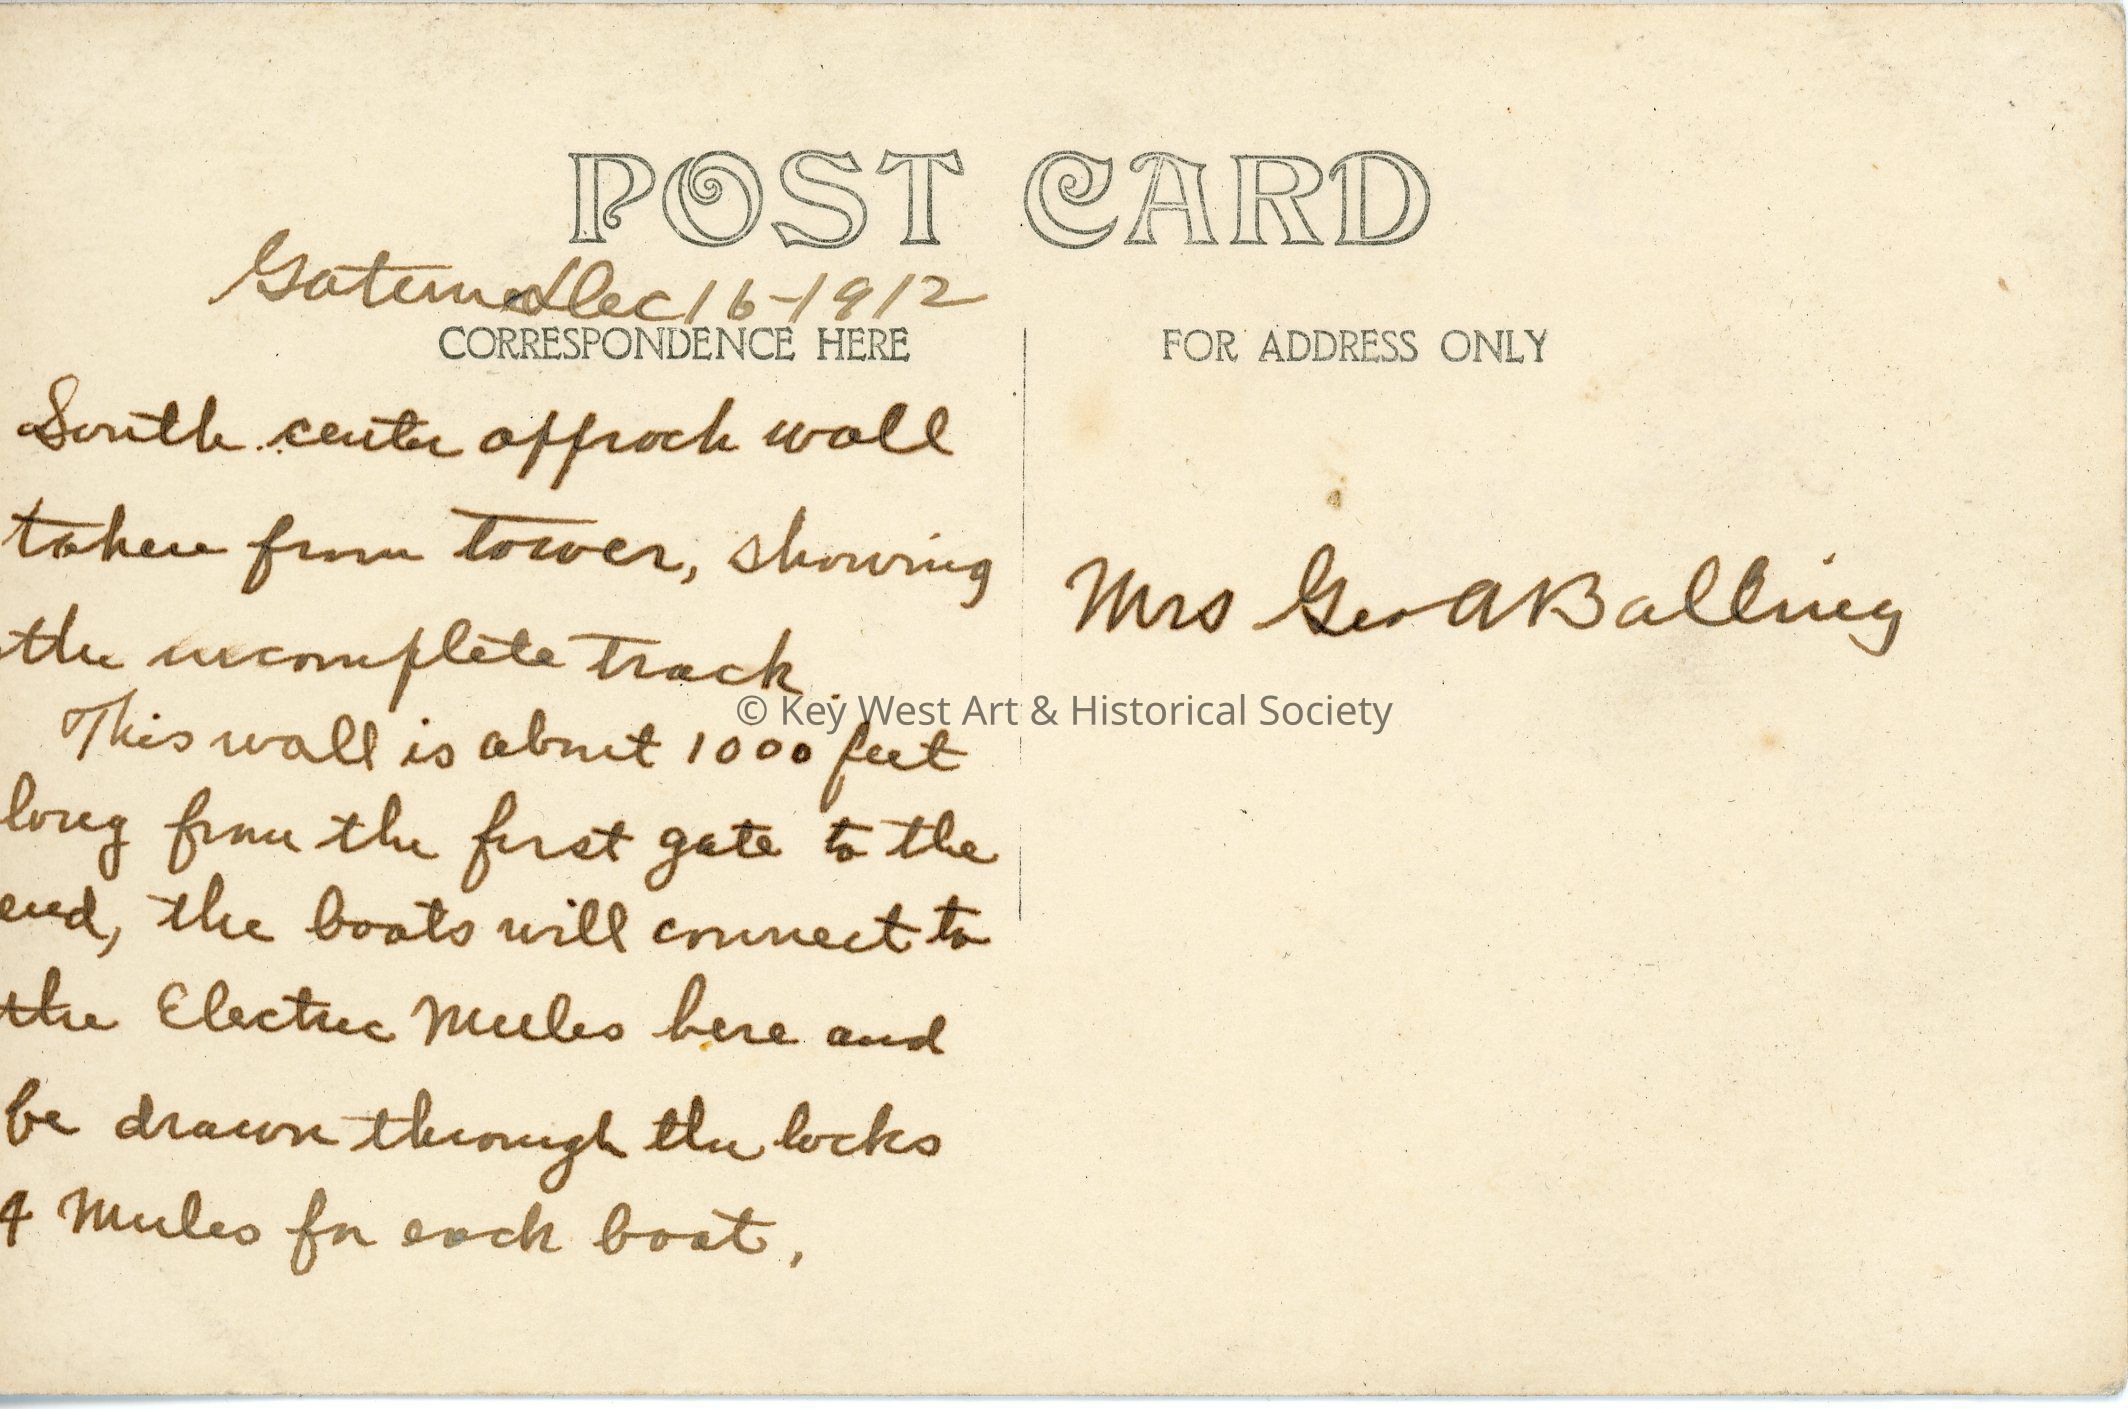 POST CARD
Gatun Dec 16-1912
CORRESPONDENCE HERE
South center approch wall
taken from tower, showing
the incomplete track
This wall is about 1000 feet
long from the first gate to the
end, the boats will connect to
the Electric Mules here and
be drawn through the locks
4 Mules for each boat,
FOR ADDRESS ONLY
Mrs Geo A Balling
© Key West Art & Historical Society